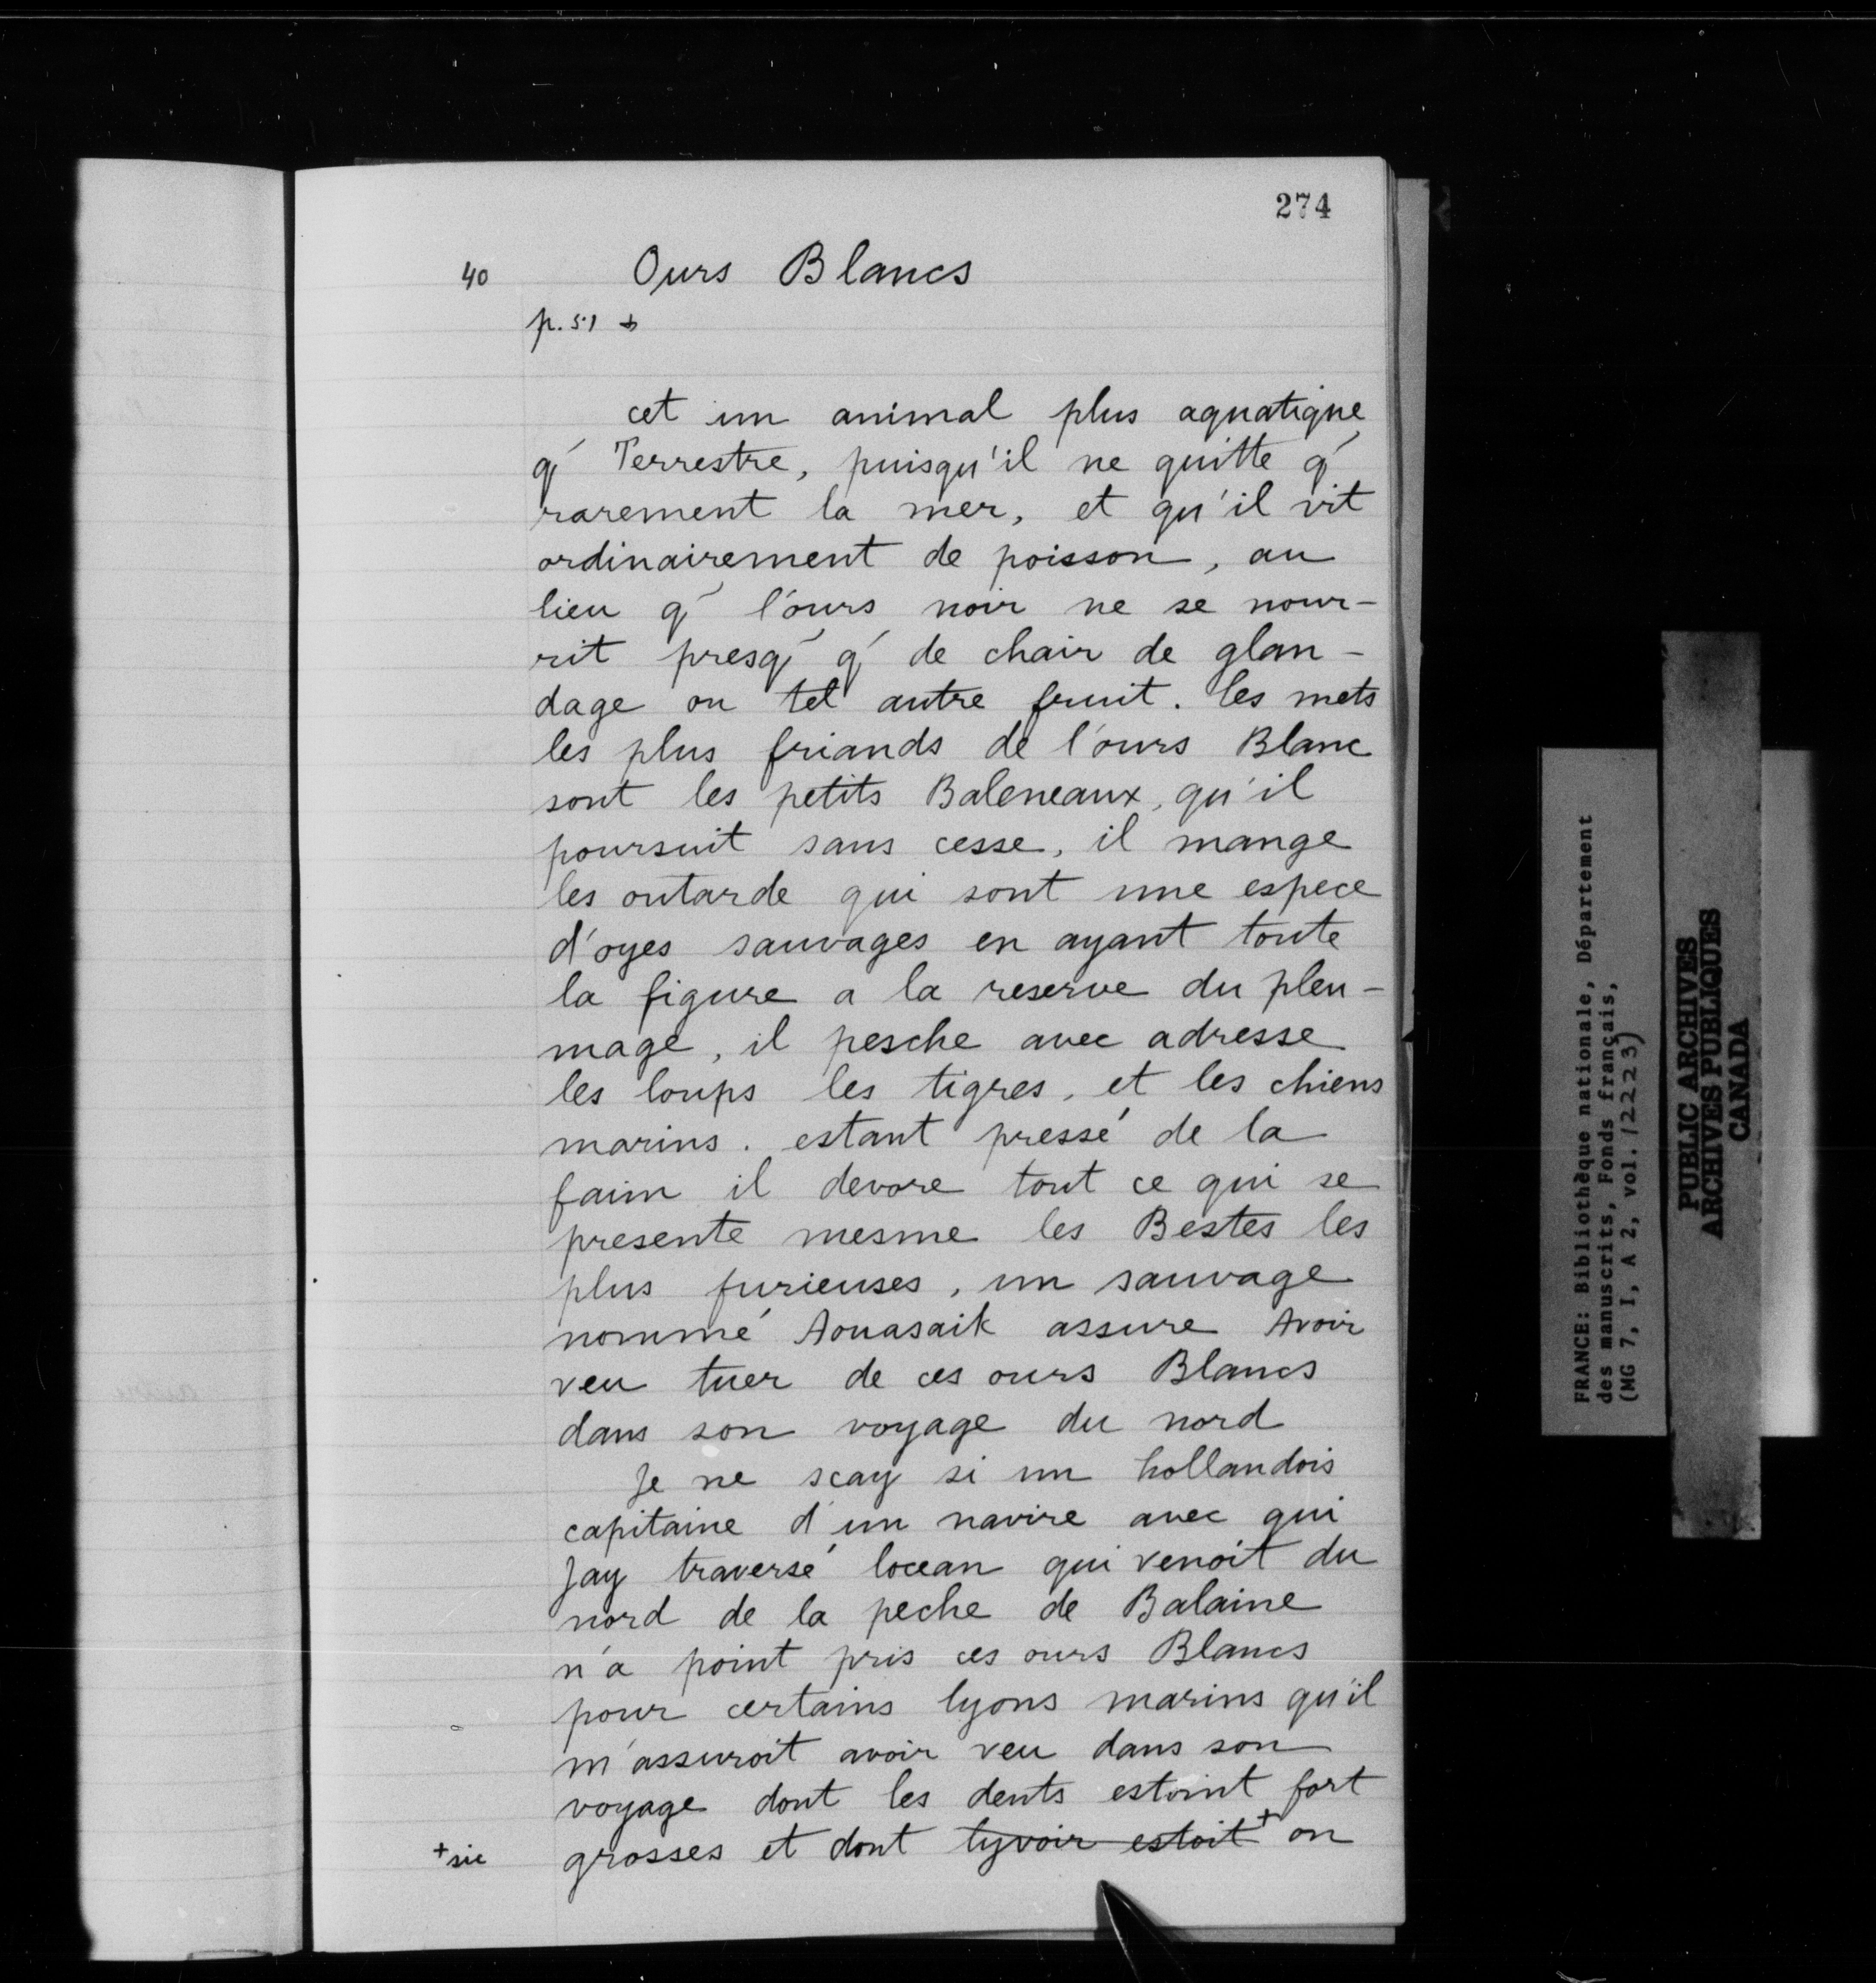 274
40 Ours Blancs
p. 51 +
cet un animal plus aquatique
q' Terrestre, puisqu'il ne quitte q'
rarement la mer, et qu'il vit
ordinairement de poisson, au
lieu q' l'ours noir ne se nour-
rit presq' q' de chair de glan-
dage ou tel autre fruit. les mets
les plus friands de l'ours Blanc
sont les petits Baleneaux, qu'il
poursuit sans cesse, il mange
les outarde qui sont une espece
d'oyes sauvages en ayant toute
la figure a la reserve du pleu-
mage, il pesche avec adresse
les loups les tigres, et les chiens
marins. estant pressé de la
faim il devore tout ce qui se
presente mesme les Bestes les
plus furieuses, un sauvage
nommé Aouasaik assure Avoir
veu tuer de ces ours Blancs
dans son voyage du nord
Je ne scay si un hollandois
capitaine d'un navire avec qui
Jay traversé locean qui venoit du
nord de la peche de Balaine
n'a point pris ces ours Blancs
pour certains lyons marins qu'il
m'assuroit avoir veu dans son
voyage dont les dents estoint fort
+sic grosses et dont lyvoir estoit+ on
FRANCE: Bibliothèque nationale, Département
des manuscrits, Fonds français,
(MG 7, I, A 2, vol. 12223)
PUBLIC ARCHIVES
ARCHIVES PUBLIQUES
CANADA